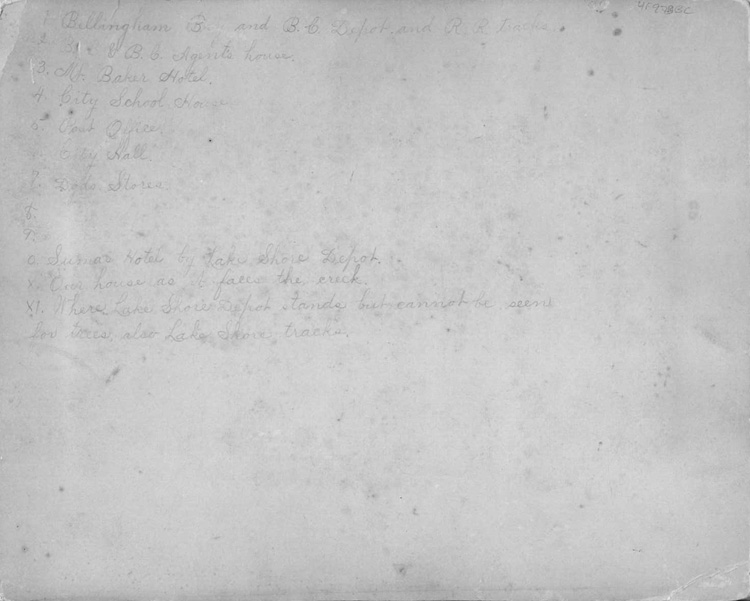 419-33C
1. Bellingham B and B.C. Depot, and R.R. tracks.
2. B. & B.C. Agents house.
3. Mt. Baker Hotel.
4. City School House
5. Post Office.
City Hall.
Stores
8.
9.
o Sumas Hotel by Lake Shore Depot.
X. Our house as it faces the creek.
XI. Where Lake Shore Depot stands but cannot be seen
for trees, also Lake Shore, tracks.